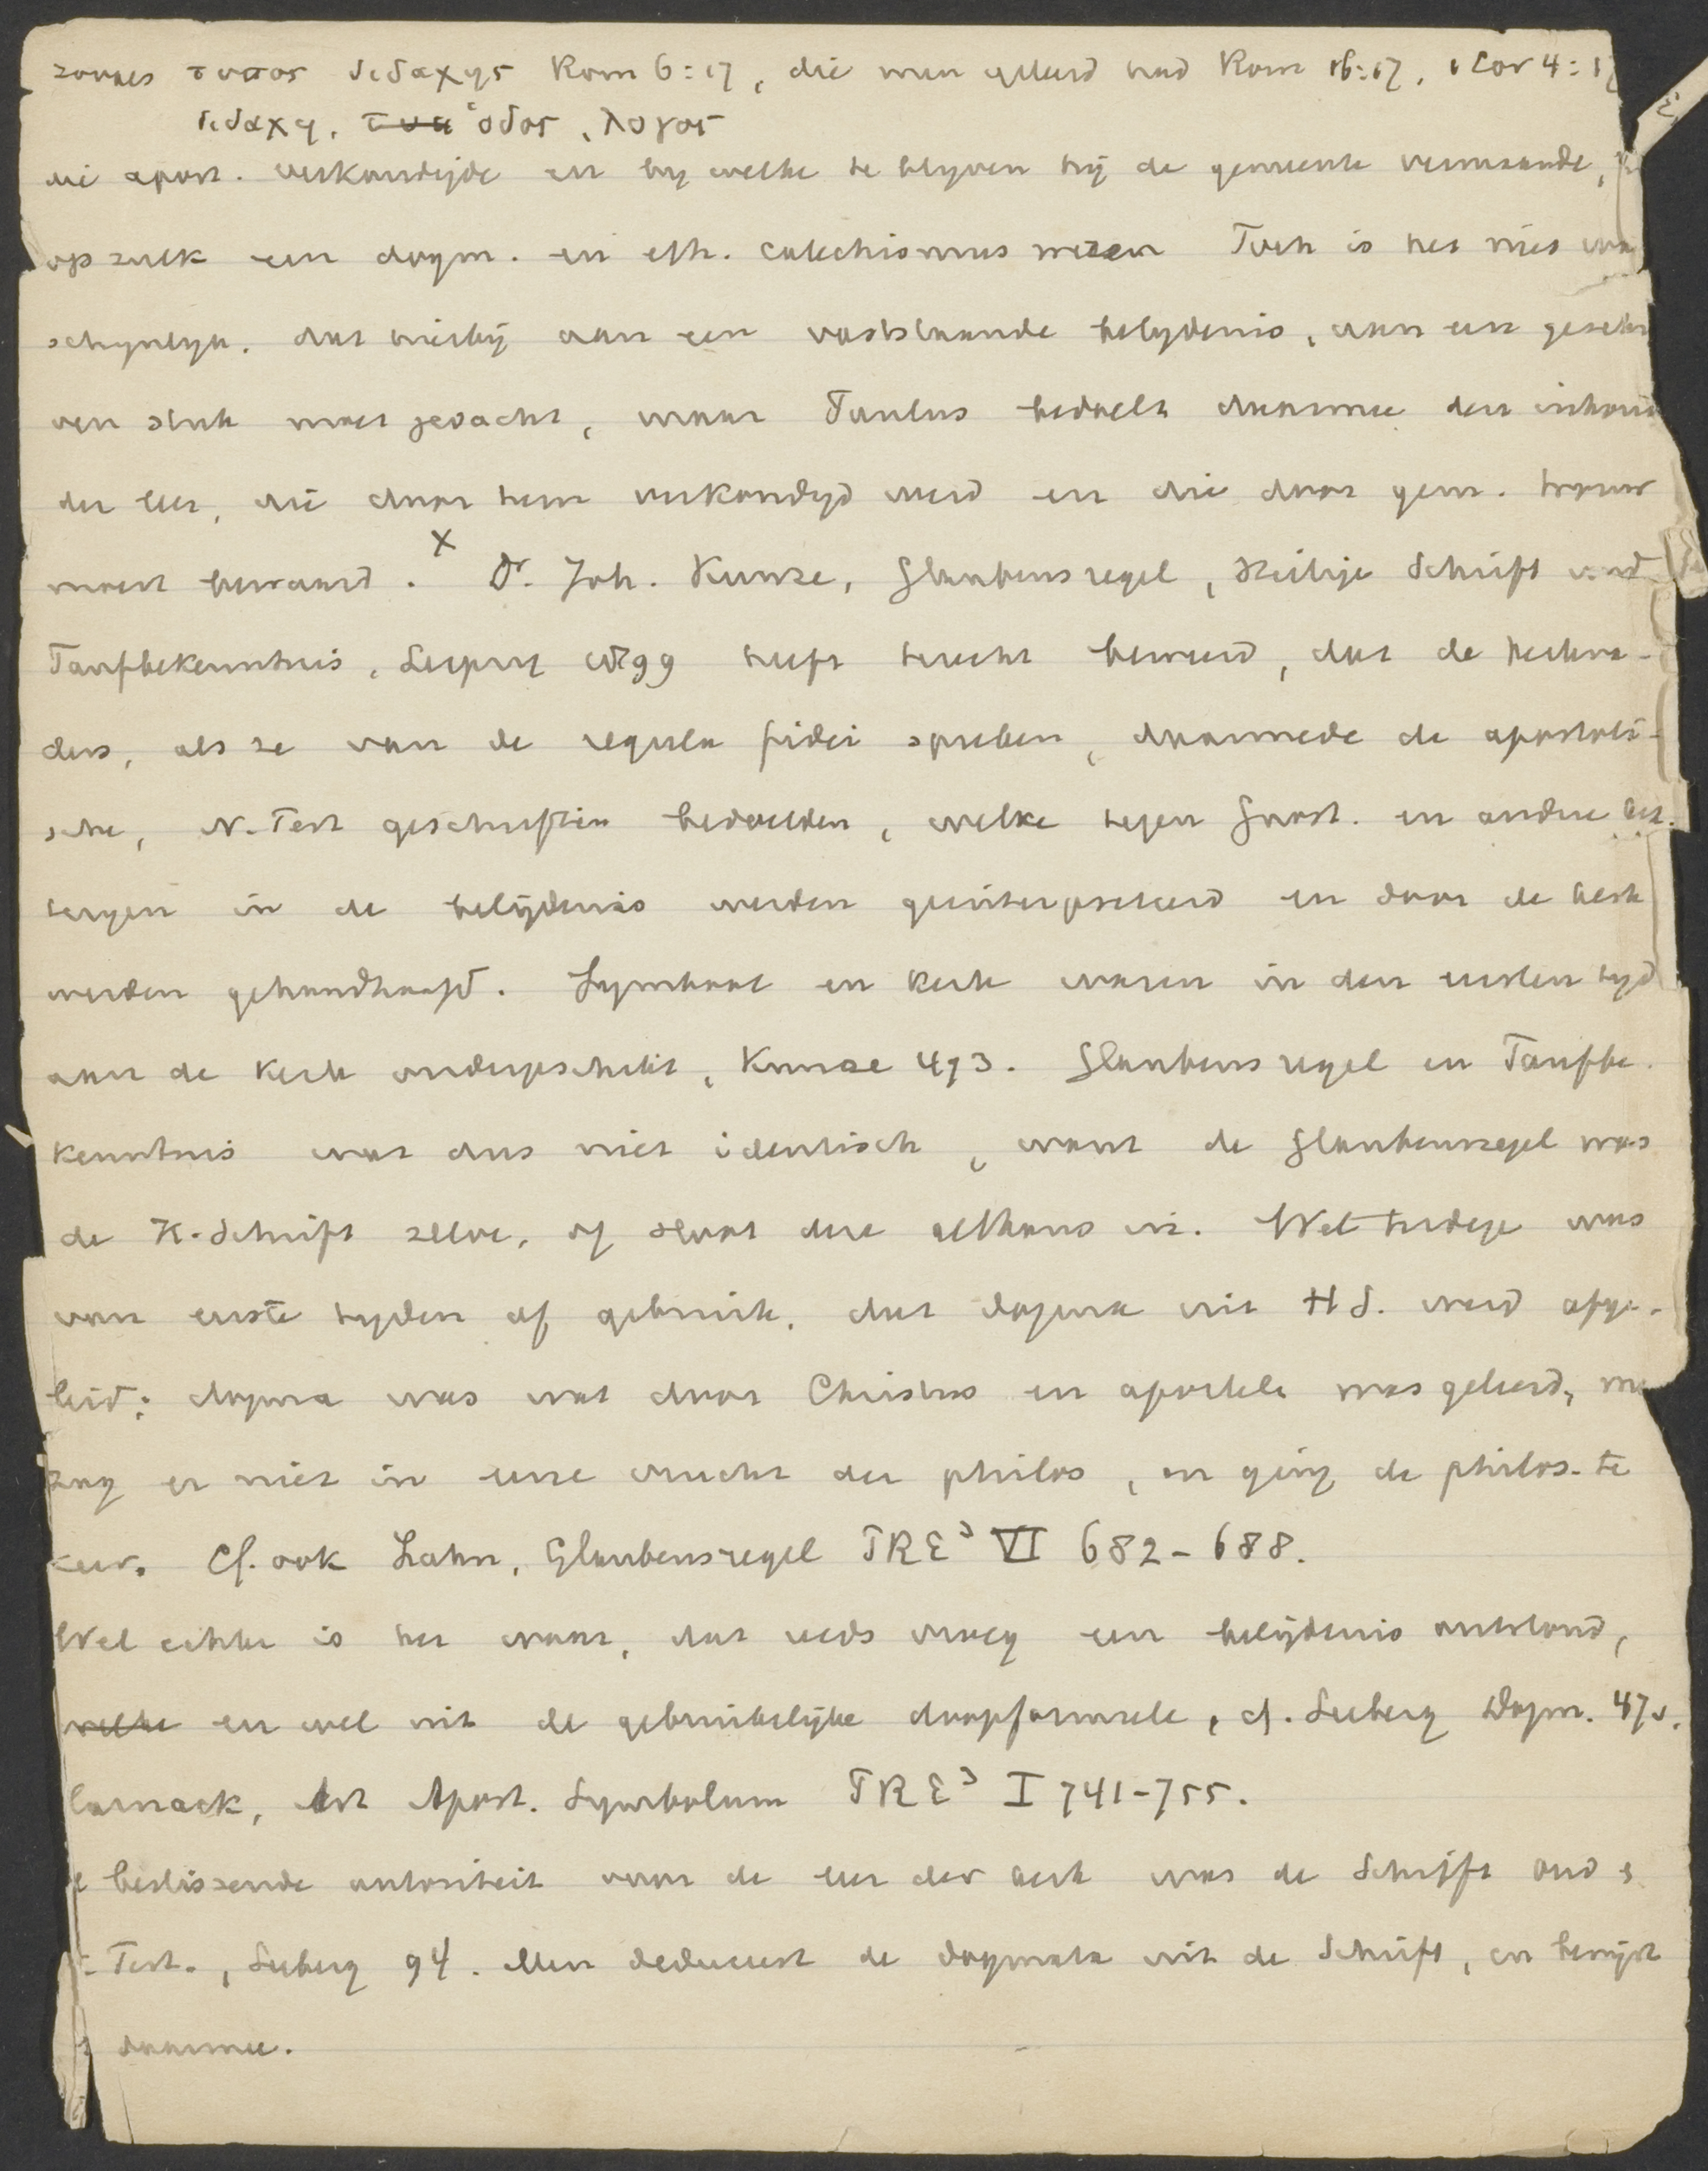 τυπος διδαχης Rom 6:17, die men geleerd had Rom 16:17, 1 Cor 4:17
διδαχη, τυπ ὁδος, λογος
die apost. verkondigde en by welke te blyven hij de gemeente vermaande,
op zulk een dogm. en eth. catechismus wezen Toch is het niet waar
schynlyk, dat hierbij aan een vaststaande belydenis, aan een geschre
ven stuk moet gedacht, maar Paulus bedoelt daarmee den inhoud
der leer, die door hem verkondigd werd en die door gem. trouw
moest bewaard. x Dr. Joh. Kunze, Glaubensregel, Heilige Schrift und
Taufbekenntnis, Leipzig 1899 heeft terecht beweerd, dat de kerkva-
ders, als ze van de regula fidei spreken, daarmede de apostoli-
sche, N-Test geschriften bedoelden, welke tegen Gnost. en andere ket.
teryen in de belijdenis werden geinterpreteerd en door de kerk
werden gehandhaafd. Symbool en kerk waren in den eersten tyd
aan de kerk ondergeschikt, Kunze 493. Glaubensregel en Taufbe.
kenntnis was dus niet identisch, want de Glaubensregel was
de H. Schrift zelve, of sloot deze althans in. Wel terdege was
van eerste tyden af gebruik, dat dogma uit H S. werd afge-
leid; dogma was wat door Christus en apostele was geleerd, men
zag er niet in eene vrucht der philos, en ging de philos. te
keer. Cf. ook Zahn, Glaubensregel PRE³ VI 682-688.
Wel echter is het waar, dat reeds vroeg een belijdenis ontstond,
welke en wel uit de gebruikelijke doopformule, cf. Seeberg Dogm. 47v.
Harnack, Art Apost. Symbolum PRE³ I 741-755.
De beslissende autoriteit voor de leer der kerk was de Schrift Oud &
N. Test., Seeberg 94. Men deduceert de dogmata uit de Schrift, en bewijst
ze daarmee.